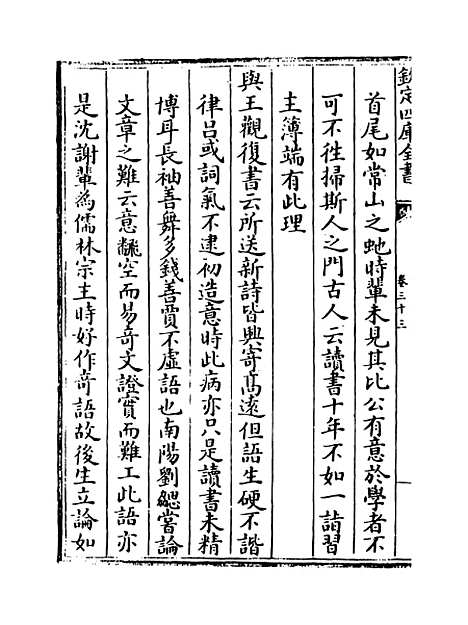 欽定四庫全書
卷三十三
首尾如常山之虵時輩未見其比公有意於學者不
可不往掃斯人之門古人云讀書十年不如一詣習
主簿端有此理
與王觀復書云所送新詩皆興寄髙逺但語生硬不諧
律吕或詞氣不逮初造意時此病亦只是讀書未精
博耳長袖善舞多錢善賈不虛語也南陽劉勰嘗論
文章之難云意翻空而易竒文證實而難工此語亦
是沈謝輩為儒林宗主時好作竒語故後生立論如